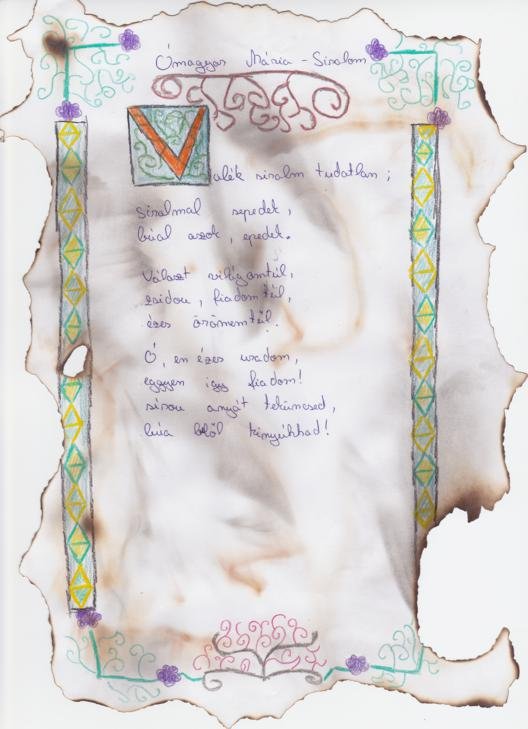 Ómagyar Mária-Siralom
Valék siralm tudatlan;
siralmal sepedek,
búal aszok, epedek.
Választ világomtúl,
zsidou, fiadomtúl,
ézes örömemtűl.
Ó, en ézes uradom,
eggyen így fiadom!
sírou anyát teküncsed,
búa belől kinyúhhad!